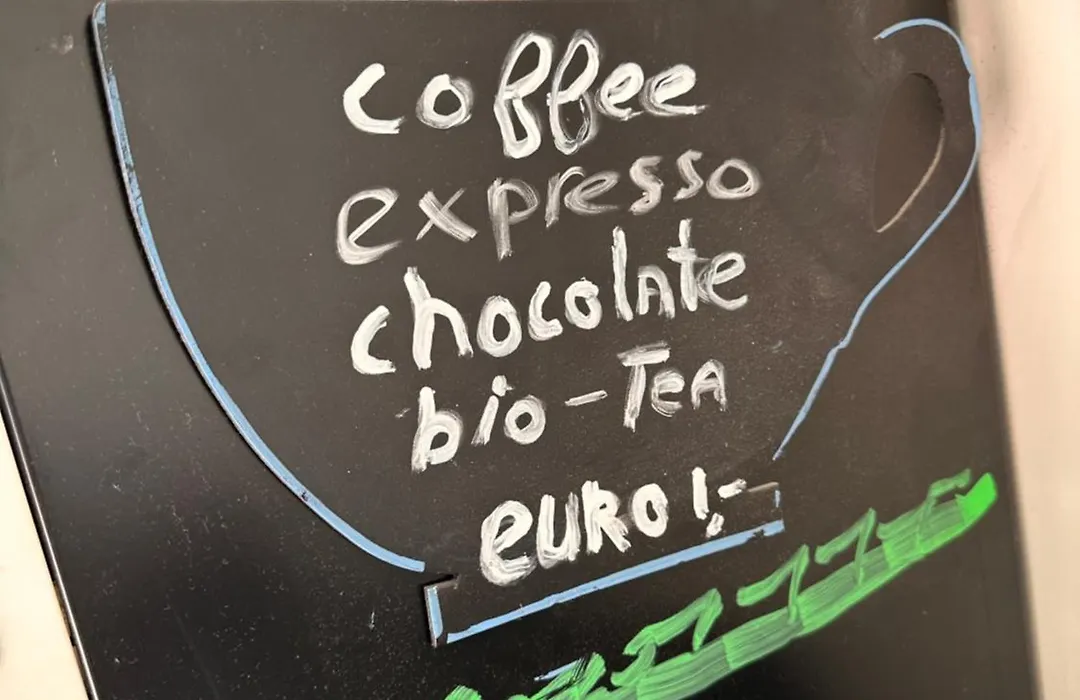 coffee
expresso
chocolate
bio-Tea
euro 1,-